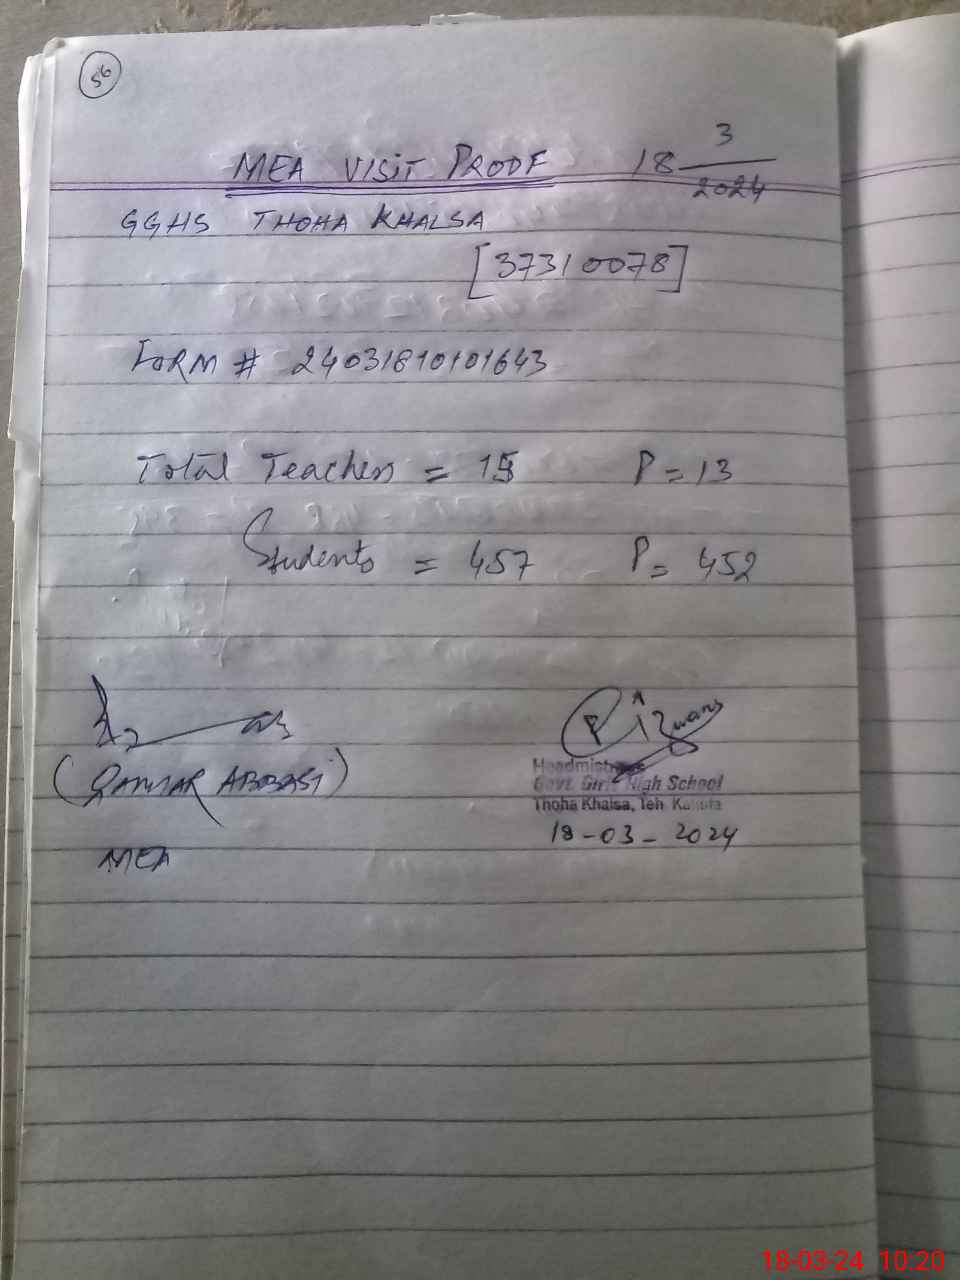 56
MEA VISIT PROOF 18 3/2024
GGHS THOHA KHALSA
[37310078]
FORM # 24031810101643
Total Teachers = 15 P = 13
Students = 457 P = 452
(QAMAR ABBASI)
MEA
Headmistress
Govt. Girls High School
Thoha Khalsa, Teh Kahuta
18-03-2024
18-03-24 10:20